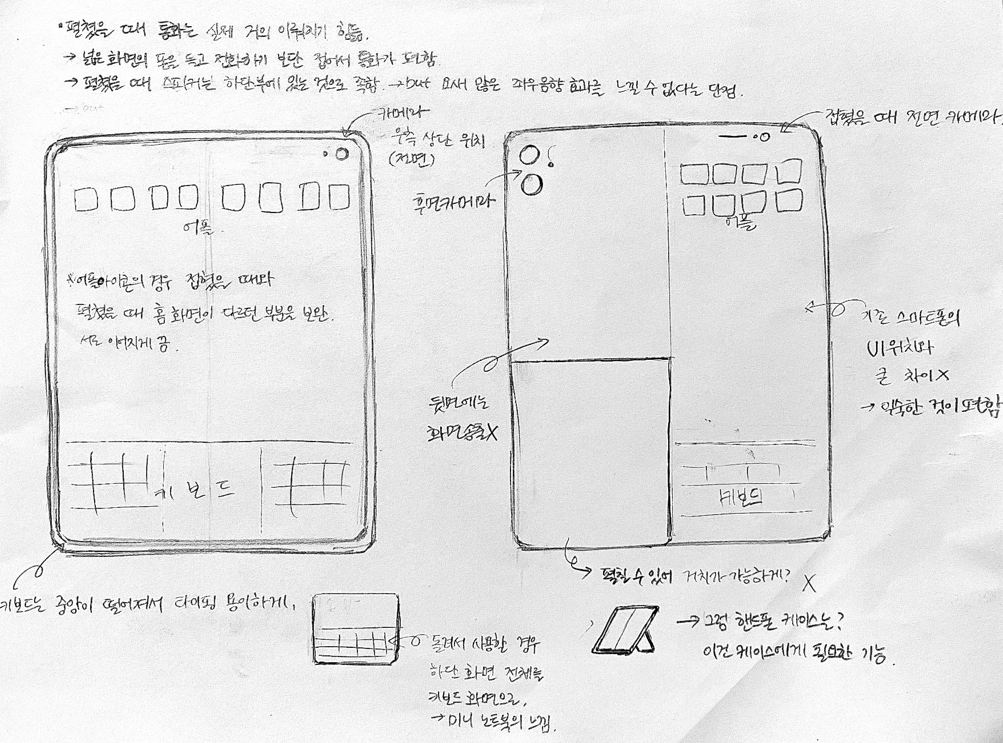 • 펼쳤을 때 통화는 실제 거의 이뤄지기 힘듦.
→ 넓은 화면의 폰을 들고 전화하기 보단 접어서 통화가 편함.
→ 펼쳤을 때 스피커는 하단부에 있는 것으로 족함. → but 요새 많은 좌우음향 효과를 느낄 수 없다는 단점.
카메라
우측 상단 위치
(전면)
어플
※ 어플아이콘의 경우 접혔을 때와
펼쳤을 때 홈 화면이 다르던 부분을 보완.
서로 이어지게 끔.
키보드
키보드는 중앙이 떨어져서 타이핑 용이하게.
돌려서 사용할 경우
하단 화면 전체를
키보드 화면으로.
→ 미니 노트북의 느낌.
접혔을 때 전면 카메라
후면카메라
어플
기존 스마트폰의
UI 위치와
큰 차이 X
→ 익숙한 것이 편함
뒷면에는
화면송출 X
키보드
펼칠 수 있어 거치가 가능하게? X
→ 그럼 핸드폰 케이스는?
이건 케이스에게 필요한 기능.